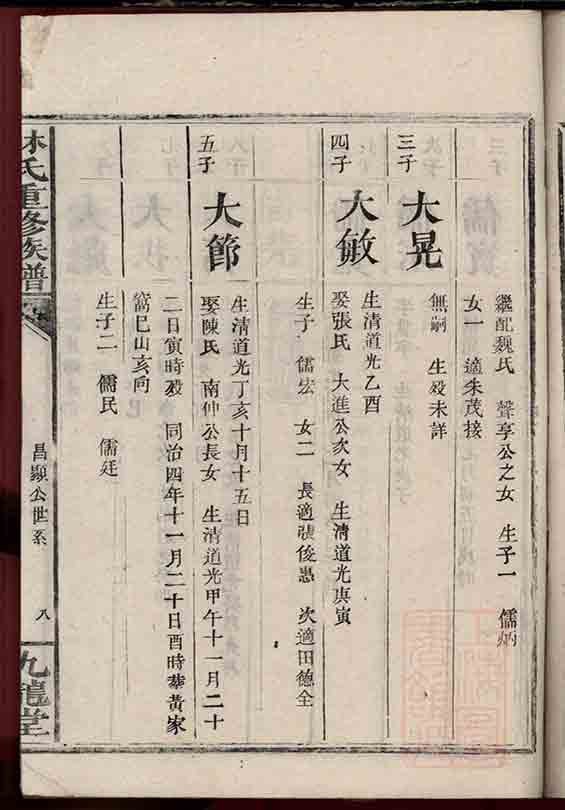 繼配魏氏 聲享公之女 生子一 儒炳
女一 適朱茂接
三子 大晃
無嗣 生歿未詳
四子 大敏
生清道光乙酉
娶張氏 大進公次女 生清道光庚寅
生子 儒宏 女二 長適張俊愚 次適田德全
五子 大節
生清道光丁亥十月十五日
娶陳氏 南仲公長女 生清道光甲午十一月二十
二日寅時歿 同治四年十一月二十日酉時葬黃家
窩巳山亥向
生子二 儒民 儒廷
林氏重修族譜
昌顯公世系
八
九龍堂